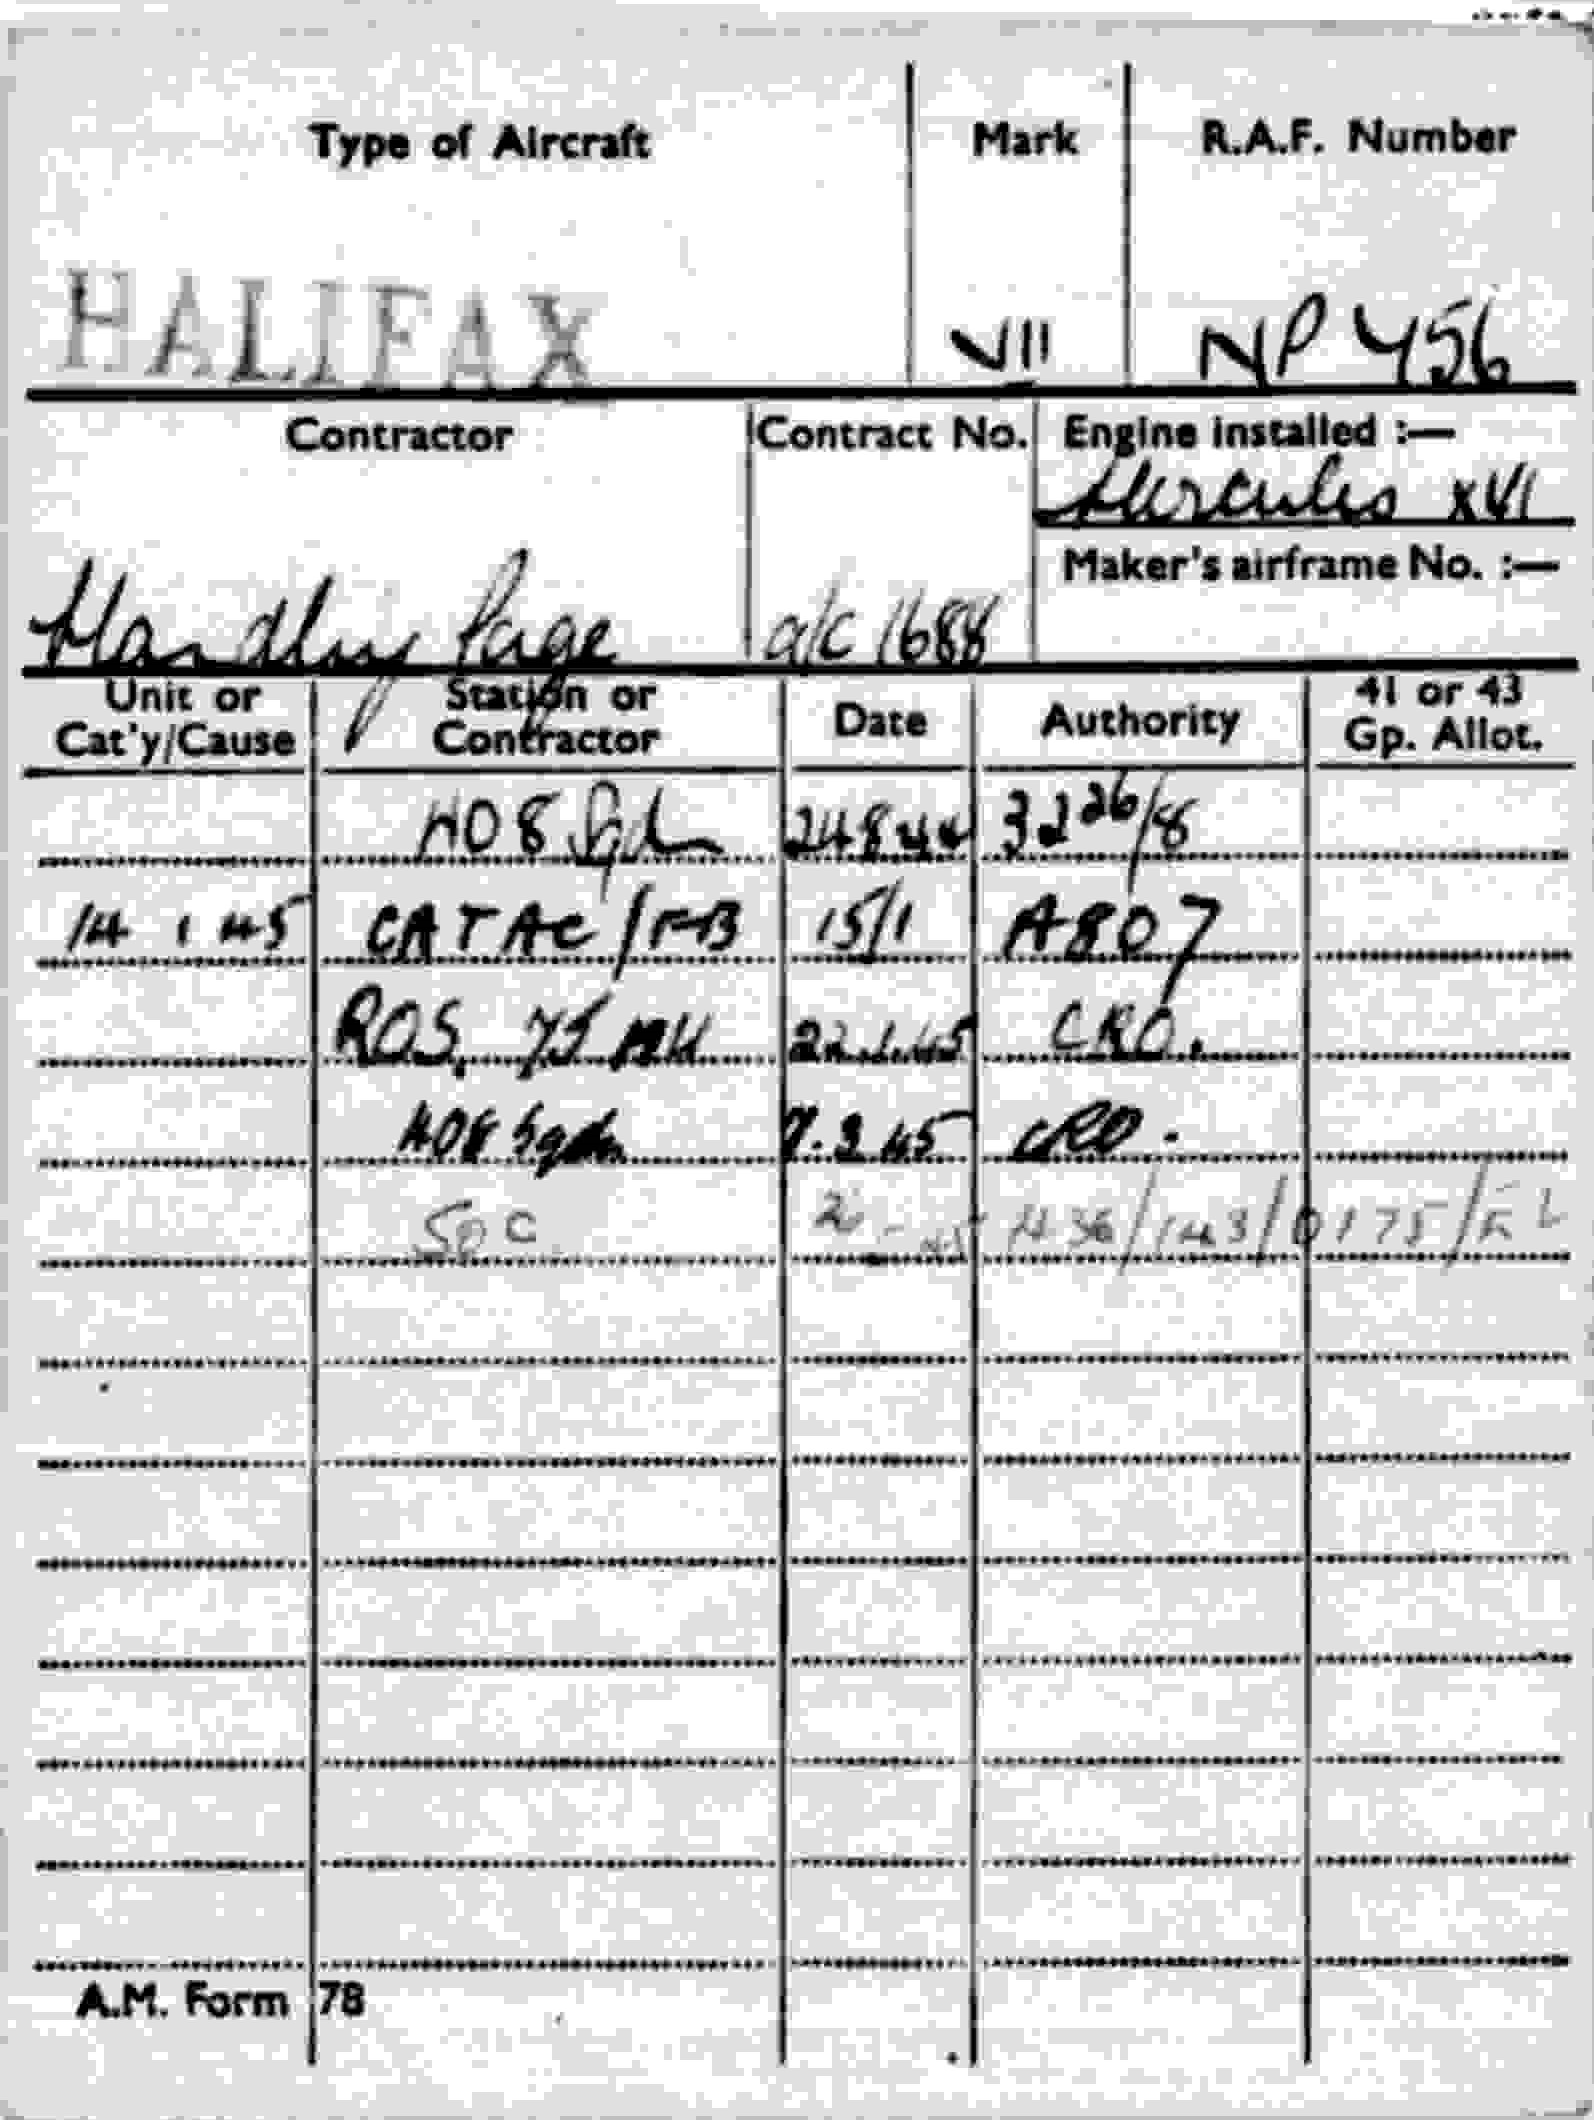 Type of Aircraft Mark R.A.F. Number
HALIFAX VII NP 756
Contractor Contract No. Engine installed :—
Hercules XVI
Maker's airframe No. :—
Handley Page a/c 1688
Unit or Cat'y/Cause Station or Contractor Date Authority 41 or 43 Gp. Allot.
408 Sqdn 24 8 44 32 26/8
14 1 45 CAT AC/FB 15/1 A807
R.O.S. 22.1.45 CRO.
408 Sqdn 7.3.45 CRO.
SOC 45 436/143/0175/
A.M. Form 78